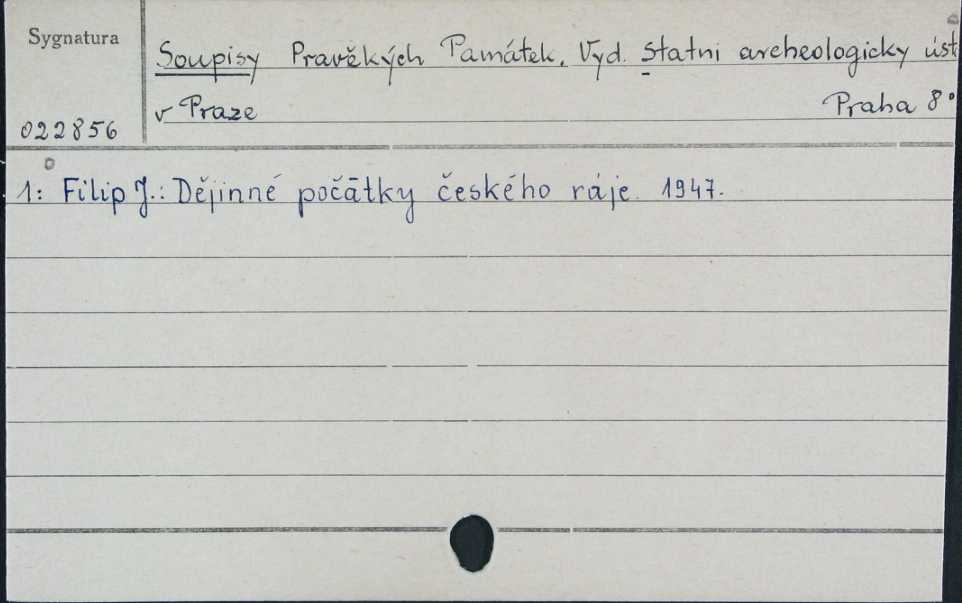 Sygnatura
Soupisy Pravěkých Památek. Vyd. Statni archeologicky úst
v Praze Praha 8°
022856
1: Filip J.: Dějinné počātky českého ráje. 1947.